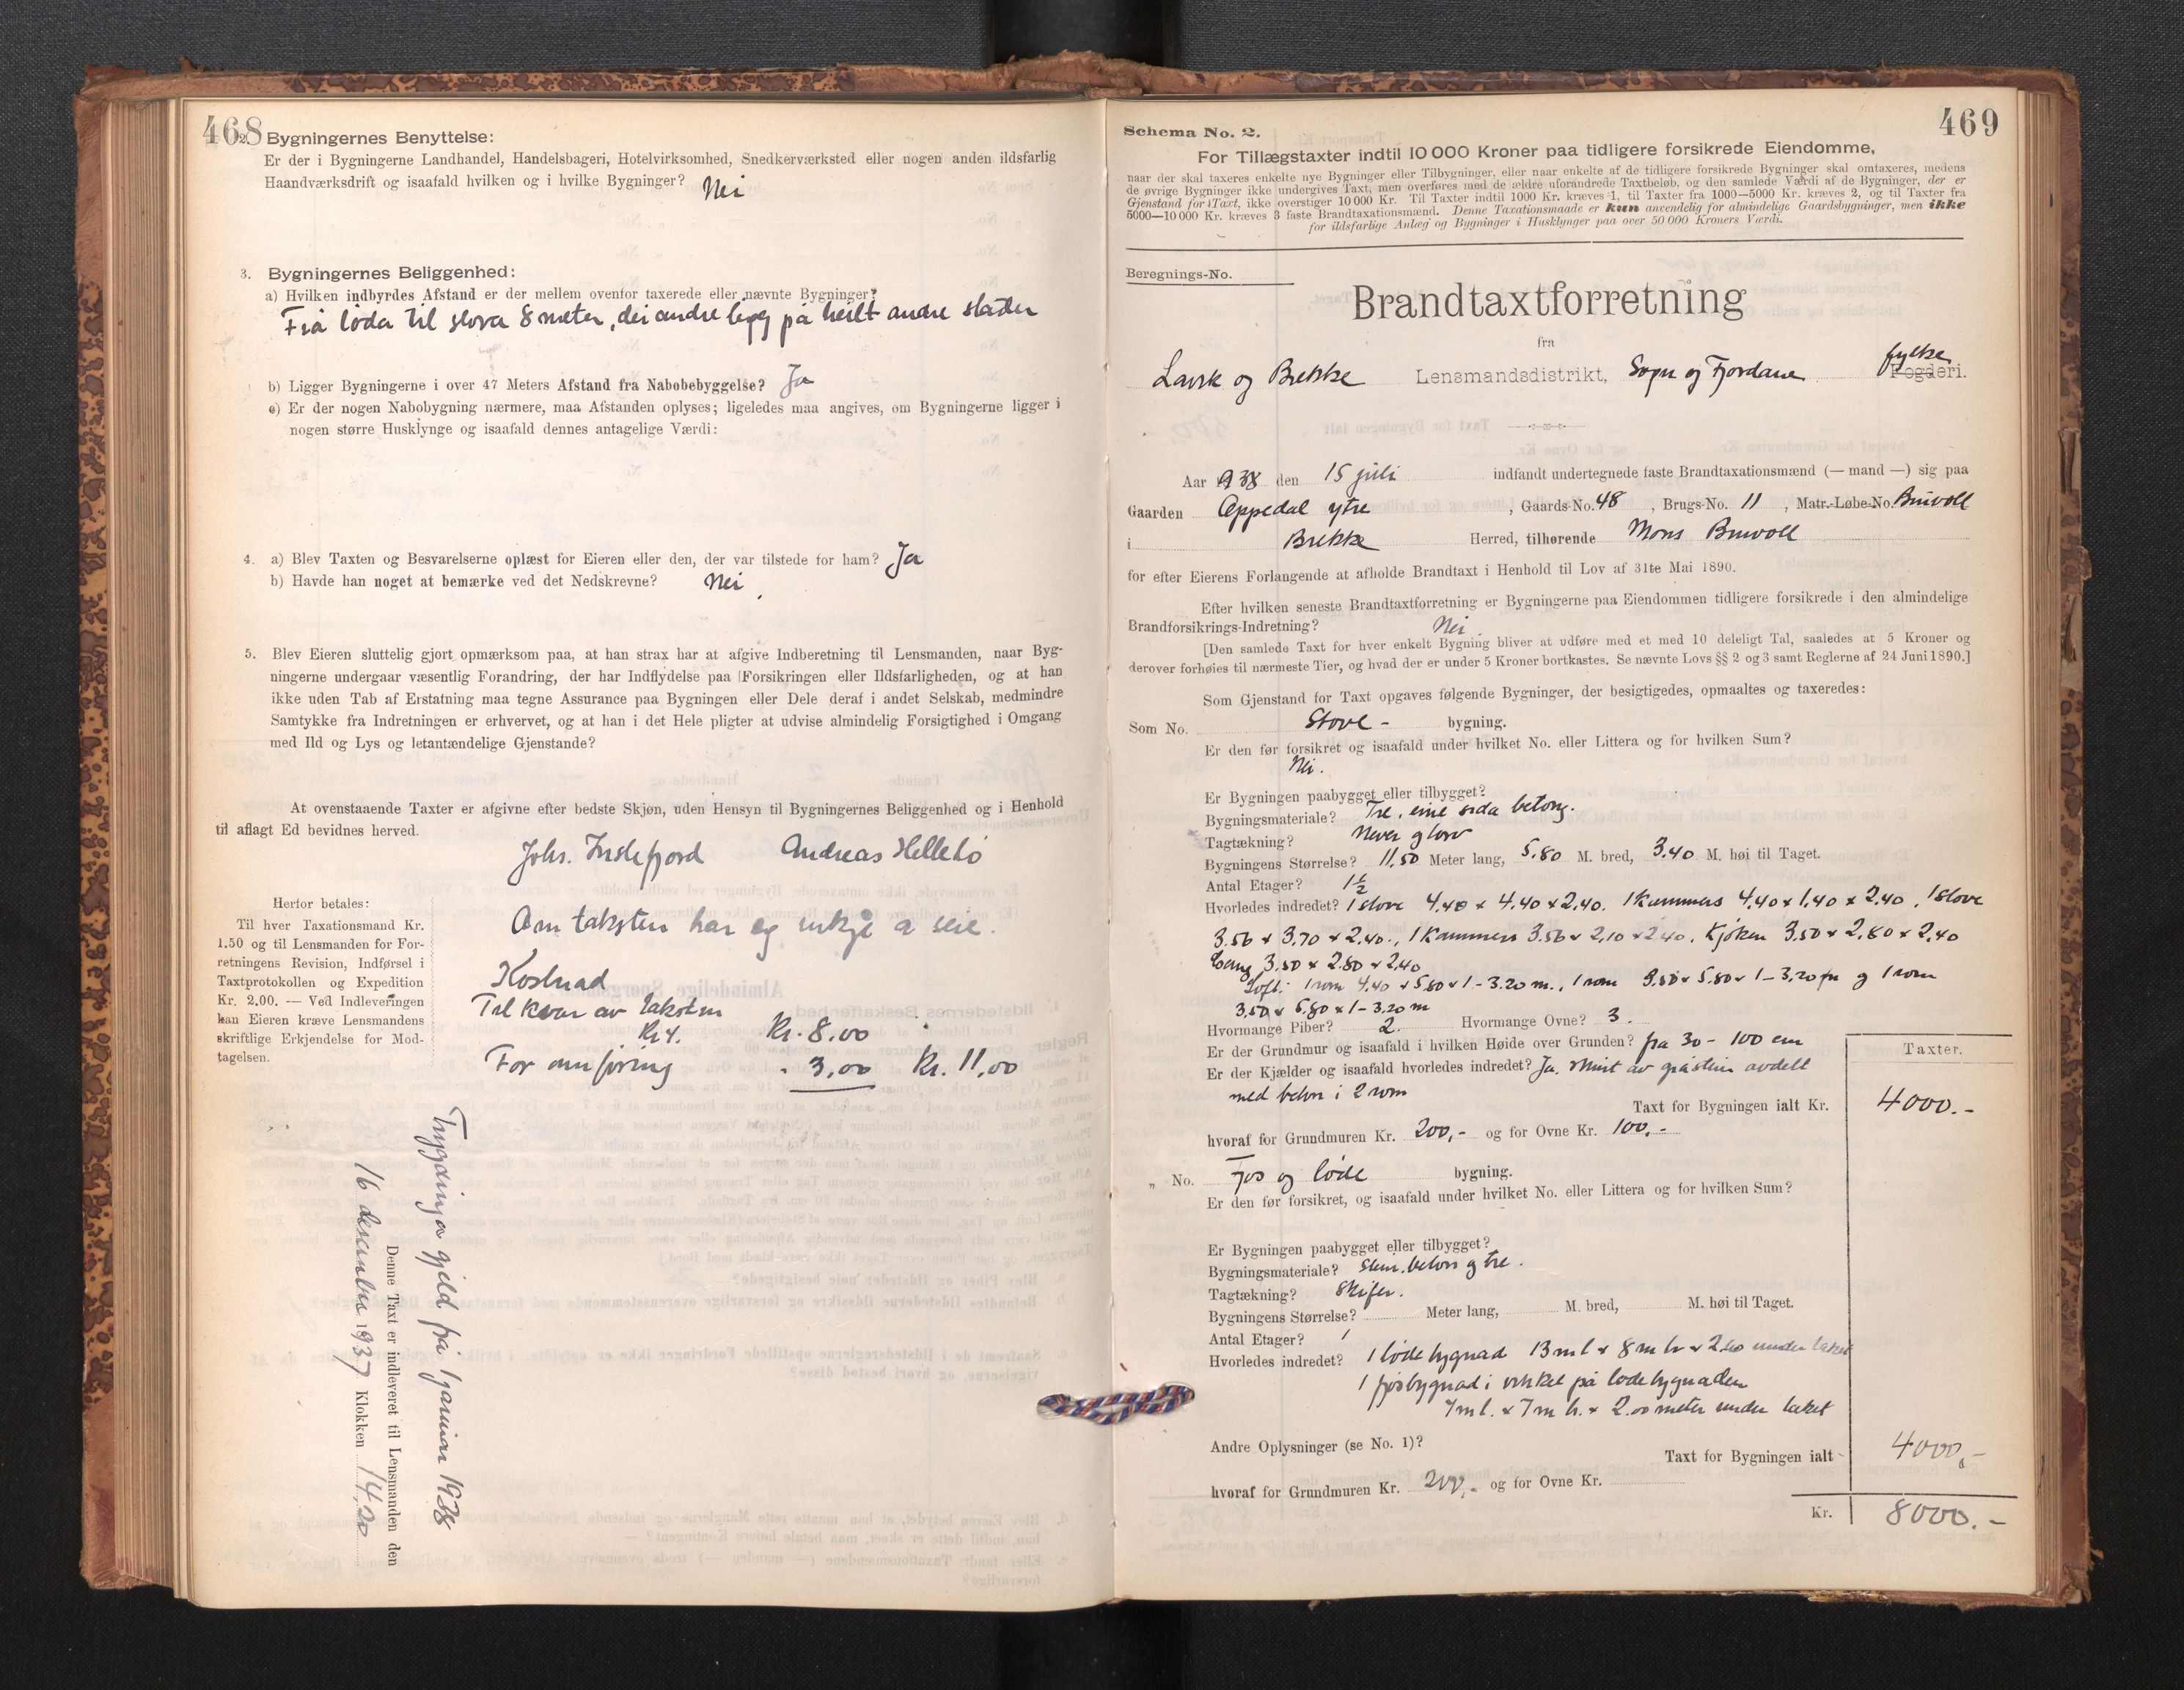 468
2. Bygningernes Benyttelse:
Er der i Bygningerne Landhandel, Handelsbageri, Hotelvirksomhed, Snedkerværksted eller nogen anden ildsfarlig
Haandværksdrift og isaafald hvilken og i hvilke Bygninger? Nei
3. Bygningernes Beliggenhed:
a) Hvilken indbyrdes Afstand er der mellem ovenfor taxerede eller nævnte Bygninger?
Frå løda til stova 8 meter, dei andre ligg på heilt andre stader
b) Ligger Bygningerne i over 47 Meters Afstand fra Nabobebyggelse? Ja
c) Er der nogen Nabobygning nærmere, maa Afstanden oplyses; ligeledes maa angives, om Bygningerne ligger i
nogen større Husklynge og isaafald dennes antagelige Værdi:
4. a) Blev Taxten og Besvarelserne oplæst for Eieren eller den, der var tilstede for ham? Ja
b) Havde han noget at bemærke ved det Nedskrevne? Nei
5. Blev Eieren sluttelig gjort opmærksom paa, at han strax har at afgive Indberetning til Lensmanden, naar Byg-
ningerne undergaar væsentlig Forandring, der har Indflydelse paa Forsikringen eller Ildsfarligheden, og at han
ikke uden Tab af Erstatning maa tegne Assurance paa Bygningen eller Dele deraf i andet Selskab, medmindre
Samtykke fra Indretningen er erhvervet, og at han i det Hele pligter at udvise almindelig Forsigtighed i Omgang
med Ild og Lys og letantændelige Gjenstande?
At ovenstaaende Taxter er afgivne efter bedste Skjøn, uden Hensyn til Bygningernes Beliggenhed og i Henhold
til aflagt Ed bevidnes herved.
Johs. Andreas Hellebø
Om taksten har eg inkje å seie.
Herfor betales:
Til hver Taxationsmand Kr.
1.50 og til Lensmanden for For-
retningens Revision, Indførsel i
Taxtprotokollen og Expedition
Kr. 2.00. — Ved Indleveringen
kan Eieren kræve Lensmandens
skriftlige Erkjendelse for Mod-
tagelsen.
Kostnad
Til kvar av takstm
Kr 4. Kr. 8.00
For innføring - 3,00 Kr. 11,00
Trygdinga gjeld frå 1 januar 1938
Denne Taxt er indleveret til Lensmanden den
16 desember 1937 Klokken 14,20
469
Schema No. 2.
For Tillægstaxter indtil 10 000 Kroner paa tidligere forsikrede Eiendomme,
naar der skal taxeres enkelte nye Bygninger eller Tilbygninger, eller naar enkelte af de tidligere forsikrede Bygninger skal omtaxeres, medens
de øvrige Bygninger ikke undergives Taxt, men overføres med de ældre uforandrede Taxtbeløb, og den samlede Værdi af de Bygninger, der er
Gjenstand for Taxt, ikke overstiger 10 000 Kr. Til Taxter indtil 1000 Kr. kræves 1, til Taxter fra 1000—5000 Kr. kræves 2, og til Taxter fra
5000—10 000 Kr. kræves 3 faste Brandtaxationsmænd. Denne Taxationsmaade er kun anvendelig for almindelige Gaardsbygninger, men ikke
for ildsfarlige Anlæg og Bygninger i Husklynger paa over 50 000 Kroners Værdi.
Beregnings-No.
Brandtaxtforretning
fra
Lavik og Brekke Lensmandsdistrikt, Sogn og Fjordane fylke Fogderi.
Aar 1938 den 15 juli indfandt undertegnede faste Brandtaxationsmænd (— mand —) sig paa
Gaarden Oppedal ytre, Gaards-No. 48, Brugs-No. 11, Matr.-Løbe-No. Buvoll
i Brekke Herred, tilhørende Mons Buvoll
for efter Eierens Forlangende at afholde Brandtaxt i Henhold til Lov af 31te Mai 1890.
Efter hvilken seneste Brandtaxtforretning er Bygningerne paa Eiendommen tidligere forsikrede i den almindelige
Brandforsikrings-Indretning? Nei
[Den samlede Taxt for hver enkelt Bygning bliver at udføre med et med 10 deleligt Tal, saaledes at 5 Kroner og
derover forhøies til nærmeste Tier, og hvad der er under 5 Kroner bortkastes. Se nævnte Lovs §§ 2 og 3 samt Reglerne af 24 Juni 1890.]
Som Gjenstand for Taxt opgaves følgende Bygninger, der besigtigedes, opmaaltes og taxeredes:
Som No. Stove - bygning.
Er den før forsikret og isaafald under hvilket No. eller Littera og for hvilken Sum?
Nei.
Er Bygningen paabygget eller tilbygget?
Bygningsmateriale? Tre, eine sida betong.
Tagtækning? Never og torv
Bygningens Størrelse? 11,50 Meter lang, 5.80 M. bred, 3.40 M. høi til Taget.
Antal Etager? 1½
Hvorledes indredet? 1 stove 4.40 x 4.40 x 2.40. 1 kammers 4.40 x 1.40 x 2.40, 1 stove
3.56 x 3.70 x 2.40., 1 kammers 3.56 x 2.10 x 2.40. Kjøken 3.50 x 2.80 x 2.40
Gang 3.50 x 2.80 x 2.40
Loft: 1 rom 4.40 x 5.80 x 1 - 3.20 m., 1 rom 3.50 x 5.80 x 1 - 3.20 m og 1 rom
3.50 x 5.80 x 1 - 3.20 m
Hvormange Piber? 2. Hvormange Ovne? 3.
Er der Grundmur og isaafald i hvilken Høide over Grunden? fra 30 - 100 cm
Er der Kjælder og isaafald hvorledes indredet? Ja. Murt av gråstein avdelt
med betong i 2 rom
Taxter.
Taxt for Bygningen ialt Kr. 4000.-
hvoraf for Grundmuren Kr. 200,- og for Ovne Kr. 100,-
„ No. Fjøs og løde bygning.
Er den før forsikret, og isaafald under hvilket No. eller Littera og for hvilken Sum?
Er Bygningen paabygget eller tilbygget?
Bygningsmateriale? Stein, betong og tre.
Tagtækning? Skifer.
Bygningens Størrelse? Meter lang, M. bred, M. høi til Taget.
Antal Etager? 1
Hvorledes indredet? 1 lødebygnad 13 m l x 8 m br x 2.60 under taket
1 fjøsbygnad i vinkel på lødebygnaden
7 m l. x 7 m br. x 2.00 meter under taket
Andre Oplysninger (se No. 1)?
Taxt for Bygningen ialt 4000,-
hvoraf for Grundmuren Kr. 200,- og for Ovne Kr.
Kr. 8000.-